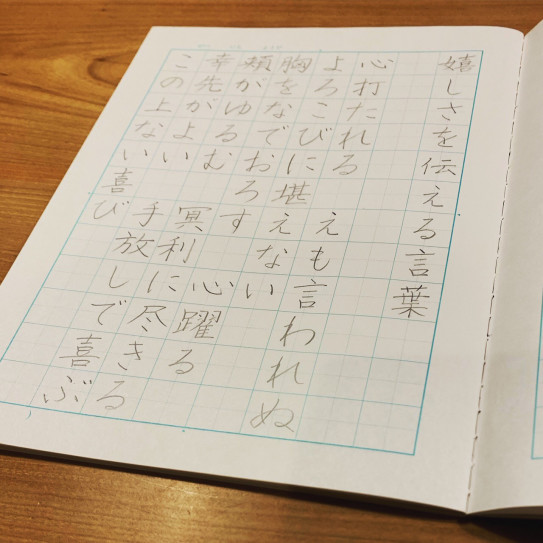 嬉しさを伝える言葉
心打たれる　えも言われぬ
よろこびに堪えない
胸をなでおろす　心躍る
頬がゆるむ　冥利に尽きる
幸先がよい　手放しで喜ぶ
この上ない喜び